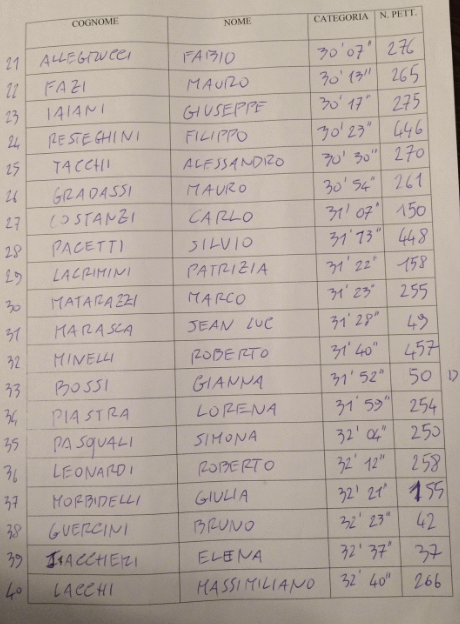 COGNOME NOME CATEGORIA N. PETT.
21 ALLEGRUCCI FABIO 30'07" 276
22 FAZI MAURO 30'13" 265
23 IAIANI GIUSEPPE 30'17" 275
24 RESTEGHINI FILIPPO 30'23" 446
25 TACCHI ALESSANDRO 30'30" 270
26 GRADASSI MAURO 30'54" 261
27 COSTANZI CARLO 31'07" 150
28 PACETTI SILVIO 31'13" 448
29 LACRIMINI PATRIZIA 31'22" 158
30 MATARAZZI MARCO 31'23" 255
31 MARASCA JEAN LUC 31'28" 49
32 MINELLI ROBERTO 31'40" 457
33 BOSSI GIANNA 31'52" 50
34 PIASTRA LORENA 31'59" 254
35 PASQUALI SIMONA 32'04" 250
36 LEONARDI ROBERTO 32'12" 258
37 MORBIDELLI GIULIA 32'21" 155
38 GUERCINI BRUNO 32'23" 42
39 ELENA 32'37" 37
40 LACCHI MASSIMILIANO 32'40" 266